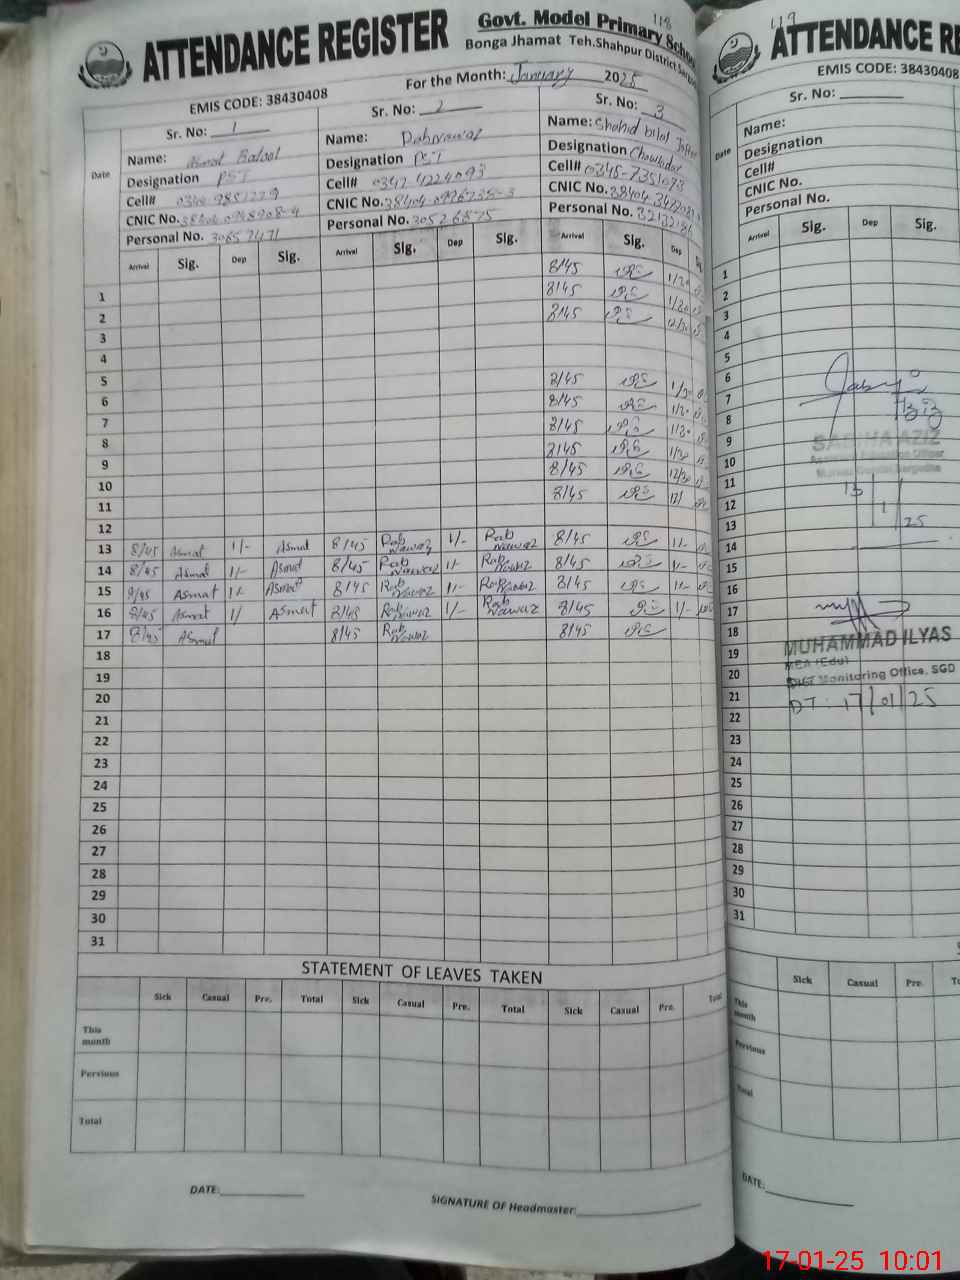 118
ATTENDANCE REGISTER
Govt. Model Primary School
Bonga Jhamat Teh.Shahpur District
EMIS CODE: 38430408
For the Month: January 2025
Sr. No: 1
Sr. No: 2
Sr. No: 3
Date
Name: Asmat Batool
Name: Rabnawaz
Name: Shahid bilal
Designation PST
Designation PST
Designation Chowkidar
Cell#
Cell# 0342 4224093
Cell# 0345-7351073
CNIC No.
CNIC No.
CNIC No.
Personal No. 30657471
Personal No. 30526875
Personal No.
Arrival Sig. Dep Sig. Arrival Sig. Dep Sig. Arrival Sig. Dep
8/45 1/30
1 8/45 1/30
2 8/45 12/30
3
4
5 8/45 1/30
6 8/45 1/30
7 8/45 1/30
8 8/45 1/30
9 8/45 12/30
10 8/45
11
12
13 8/45 Asmat 1/- Asmat 8/45 Rab Nawaz 1/- Rab Nawaz 8/45 1/-
14 8/45 Asmat 1/- Asmat 8/45 Rab Nawaz 1/- Rab Nawaz 8/45 1/-
15 8/45 Asmat 1/- Asmat 8/45 Rab Nawaz 1/- Rab Nawaz 8/45 1/-
16 8/45 Asmat 1/ Asmat 8/45 Rab Nawaz 1/- Rab Nawaz 8/45 1/-
17 8/45 Asmat 8/45 Rab Nawaz 8/45
18
19
20
21
22
23
24
25
26
27
28
29
30
31
STATEMENT OF LEAVES TAKEN
Sick Casual Pre. Total Sick Casual Pre. Total Sick Casual Pre. Total
This month
Pervious
Total
DATE:
SIGNATURE OF Headmaster:
119
ATTENDANCE RE
EMIS CODE: 38430408
Sr. No:
Date
Name:
Designation
Cell#
CNIC No.
Personal No.
Arrival Sig. Dep Sig.
1
2
3
4
5
6
7
8
9
10
11
12
13
14
15
16
17
18
19
20
21
22
23
24
25
26
27
28
29
30
31
SADIHA AZIZ
13/1/25
MUHAMMAD ILYAS
MEA (Edu)
Distt Monitoring Office, SGD
DT: 17/01/25
Sick Casual Pre.
This month
Pervious
Total
DATE:
17-01-25 10:01